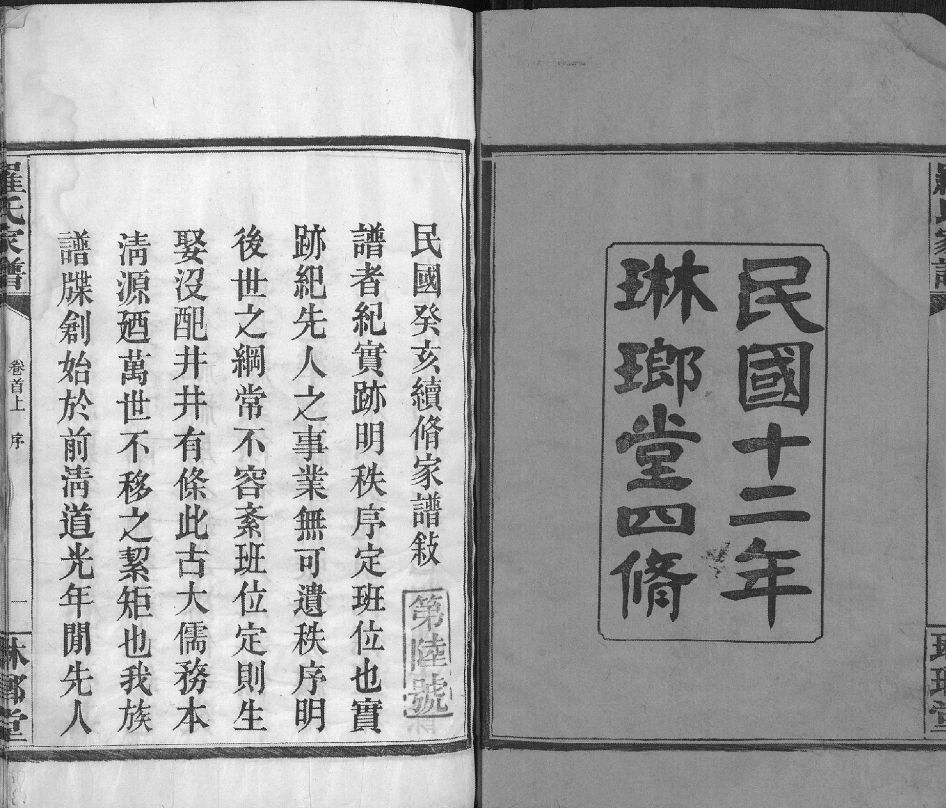 民國十二年
琳瑯堂四脩
民國癸亥續脩家譜敍
第陸號
譜者紀實跡明秩序定班位也實
跡紀先人之事業無可遺秩序明
後世之綱常不容紊班位定則生
娶沒配井井有條此古大儒務本
淸源廼萬世不移之絜矩也我族
譜牒創始於前淸道光年閒先人
羅氏家譜
卷首上 序
一
琳瑯堂